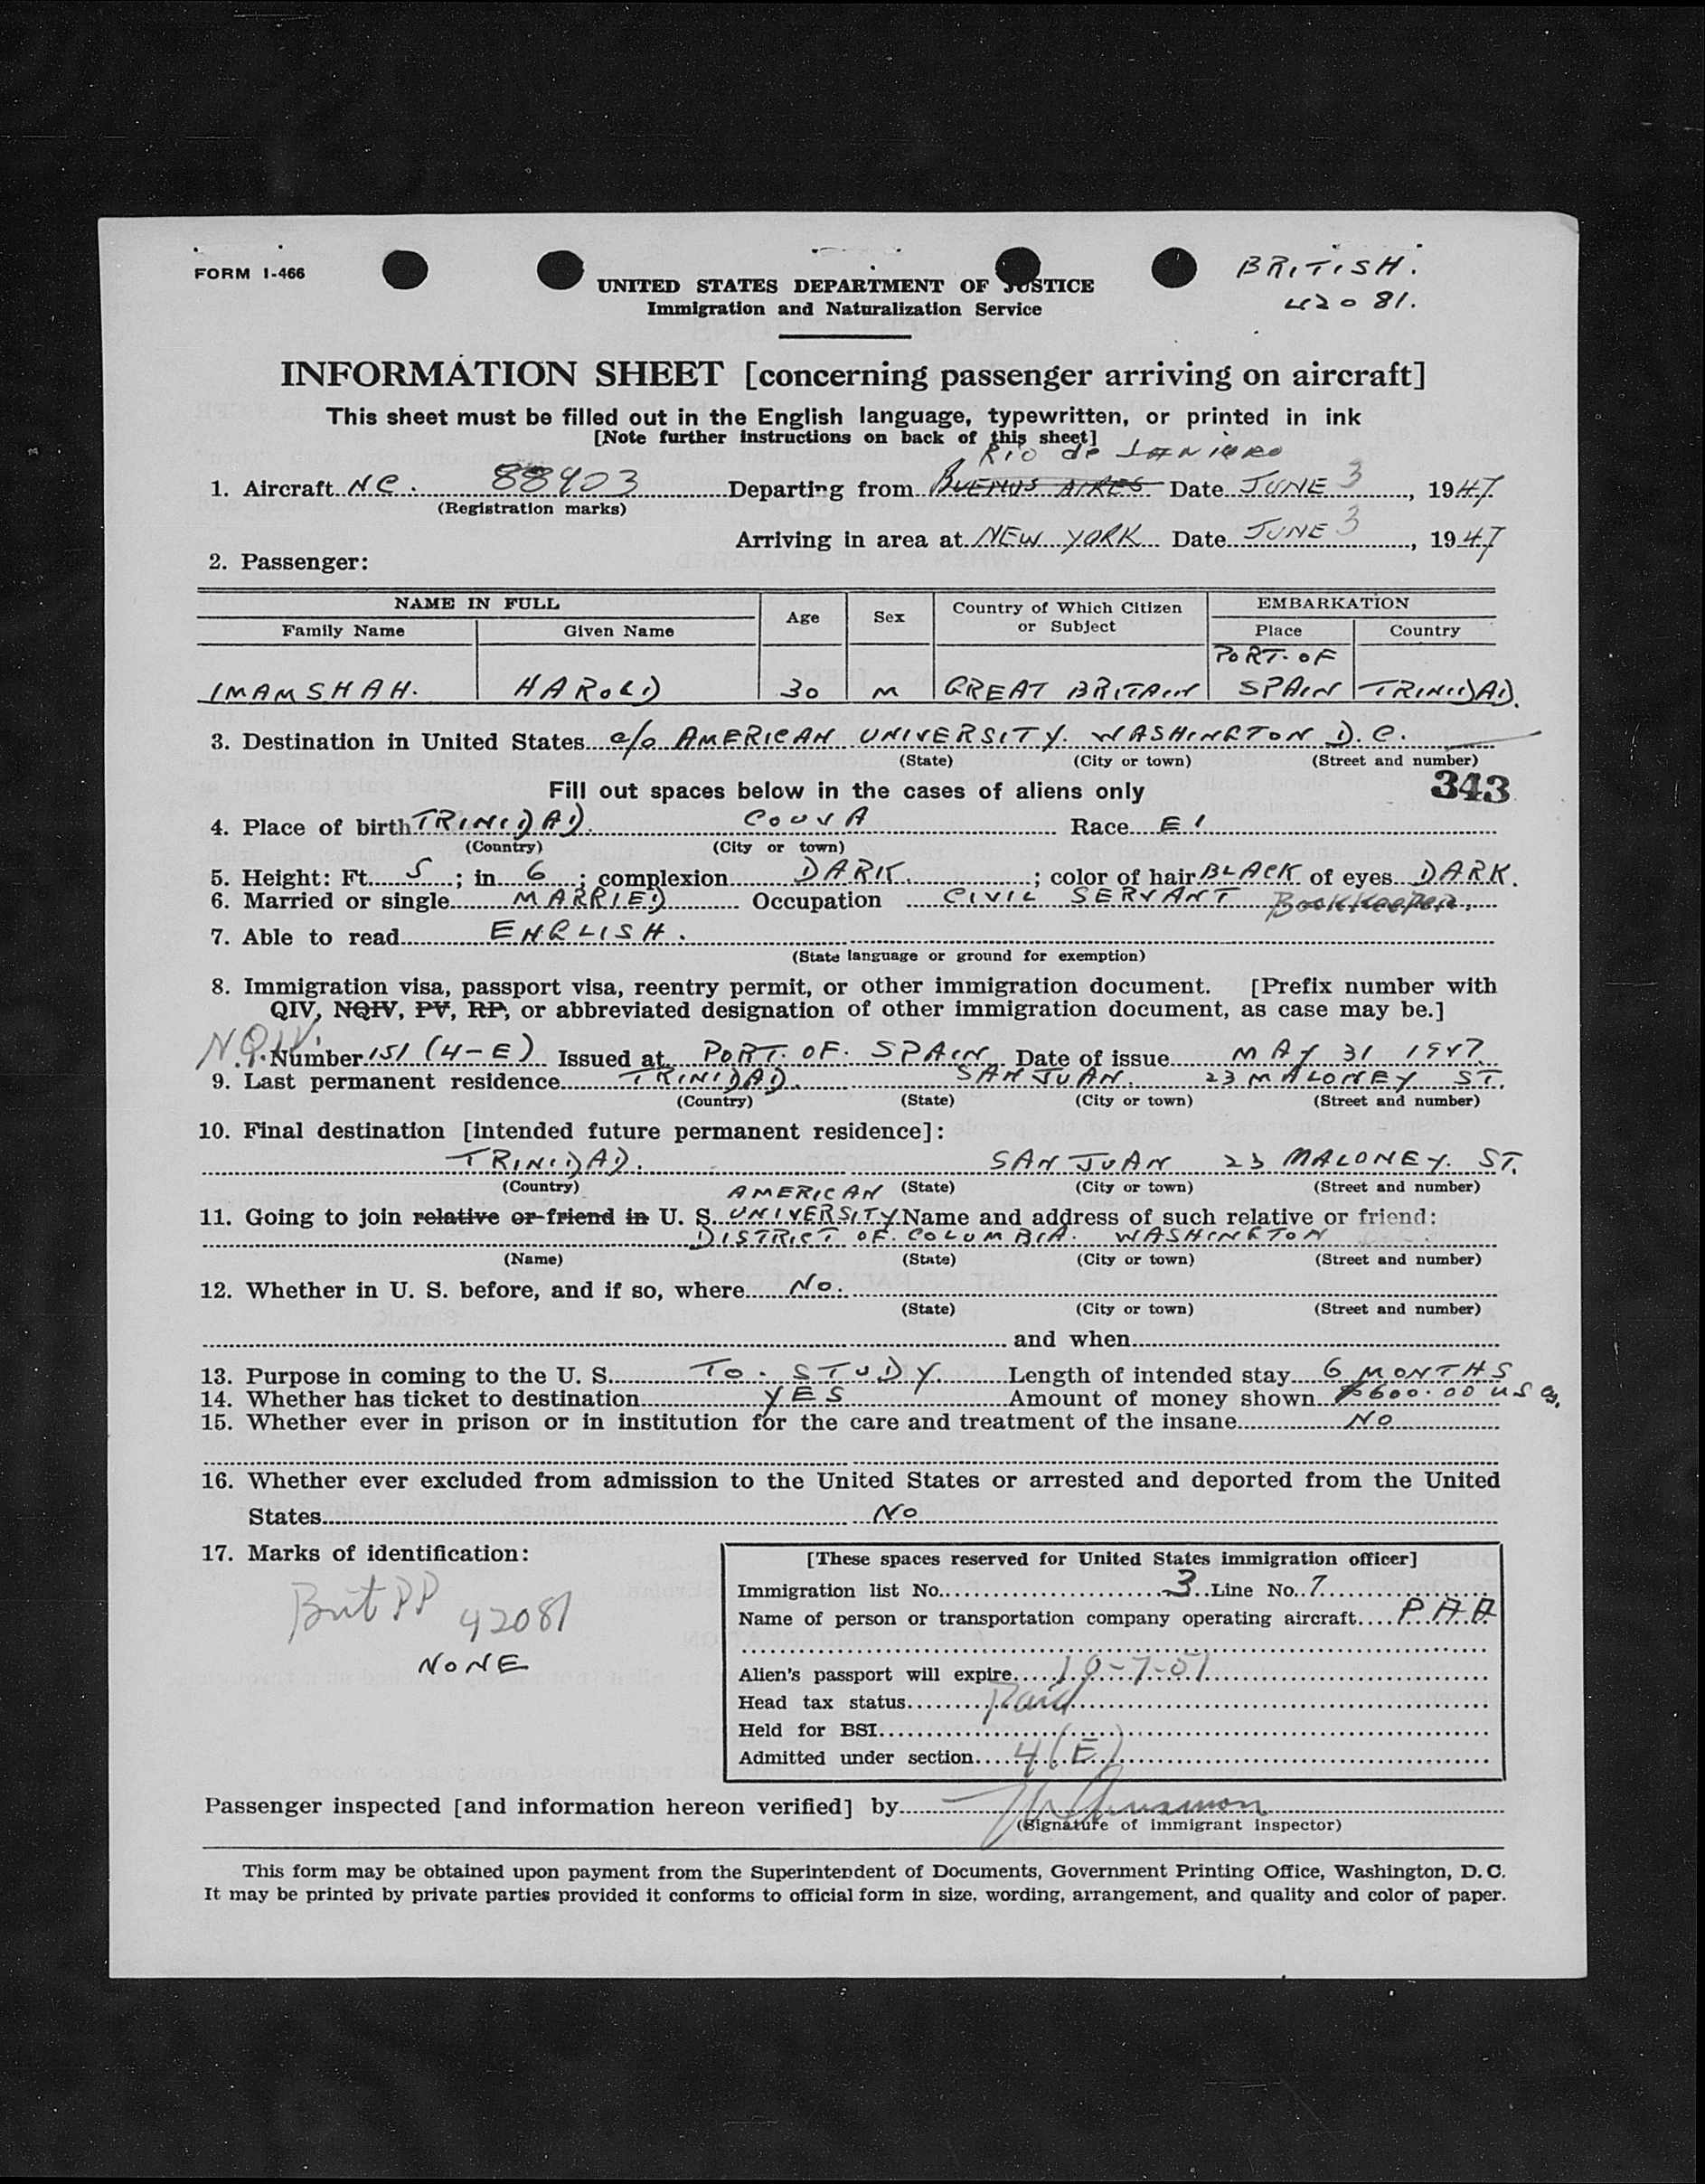 FORM I-466
BRITISH.
42081.
UNITED STATES DEPARTMENT OF JUSTICE
Immigration and Naturalization Service
INFORMATION SHEET [concerning passenger arriving on aircraft]
This sheet must be filled out in the English language, typewritten, or printed in ink
[Note further instructions on back of this sheet]
RIO de JANIERO
1. Aircraft NC. 88903 Departing from BUENUS AIRES Date JUNE 3, 1947
(Registration marks)
Arriving in area at NEW YORK Date JUNE 3, 1947
2. Passenger:
NAME IN FULL Age Sex Country of Which Citizen or Subject EMBARKATION
Family Name Given Name Place Country
PORT-OF
IMAMSHAH. HAROLD 30 M GREAT BRITAIN SPAIN TRINIDAD.
3. Destination in United States c/o AMERICAN UNIVERSITY. WASHINGTON D.C.
(State) (City or town) (Street and number)
Fill out spaces below in the cases of aliens only 343
4. Place of birth TRINIDAD. COUVA Race E I
(Country) (City or town)
5. Height: Ft. 5; in. 6; complexion DARK.; color of hair BLACK of eyes DARK.
6. Married or single MARRIED Occupation CIVIL SERVANT Bookkeeper.
7. Able to read ENGLISH.
(State language or ground for exemption)
8. Immigration visa, passport visa, reentry permit, or other immigration document. [Prefix number with
QIV, NQIV, PV, RP, or abbreviated designation of other immigration document, as case may be.]
NQIV. Number 151 (4-E) Issued at PORT. OF. SPAIN Date of issue MAY 31 1947
9. Last permanent residence TRINIDAD. SAN JUAN. 23 MALONEY ST.
(Country) (State) (City or town) (Street and number)
10. Final destination [intended future permanent residence]:
TRINIDAD. SAN JUAN 23 MALONEY. ST.
(Country) (State) (City or town) (Street and number)
AMERICAN
11. Going to join relative or friend in U. S. UNIVERSITY Name and address of such relative or friend:
DISTRICT OF. COLUMBIA. WASHINGTON
(Name) (State) (City or town) (Street and number)
12. Whether in U. S. before, and if so, where No.
(State) (City or town) (Street and number)
and when
13. Purpose in coming to the U. S. TO. STUDY Length of intended stay 6 MONTHS
14. Whether has ticket to destination YES Amount of money shown $600.00 US
15. Whether ever in prison or in institution for the care and treatment of the insane NO
16. Whether ever excluded from admission to the United States or arrested and deported from the United
States NO
17. Marks of identification:
Brit PP 42081
NONE
[These spaces reserved for United States immigration officer]
Immigration list No. 3 Line No. 7
Name of person or transportation company operating aircraft PAA
Alien's passport will expire 10-7-51
Head tax status Paid
Held for BSI
Admitted under section 4(E)
Passenger inspected [and information hereon verified] by
(Signature of immigrant inspector)
This form may be obtained upon payment from the Superintendent of Documents, Government Printing Office, Washington, D. C.
It may be printed by private parties provided it conforms to official form in size, wording, arrangement, and quality and color of paper.